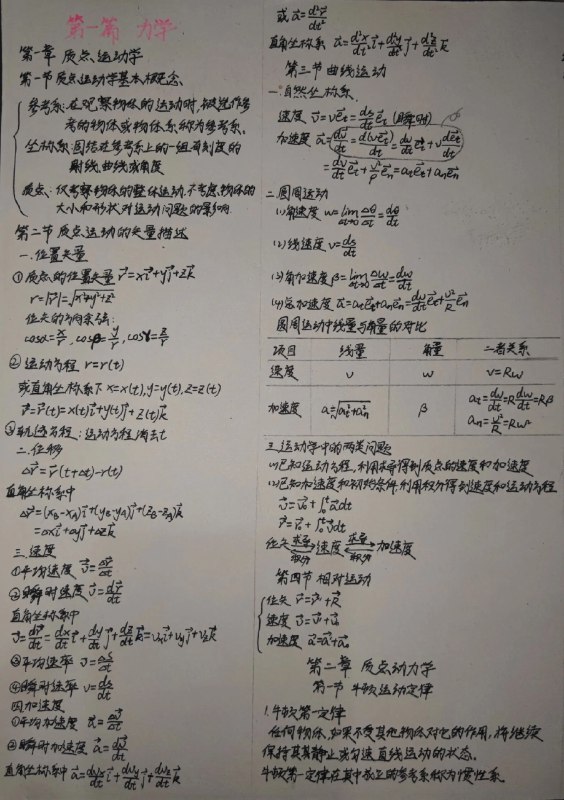 第一篇 力学
第一章 质点运动学
第一节 质点运动学基本概念
参考系:在观察物体的运动时,被选作参
考的物体或物体系称为参考系.
坐标系:固结在参考系上的一组有刻度的
射线、曲线或角度
质点:仅考察物体的整体运动,不考虑物体的
大小和形状对运动问题的影响.
第二节 质点运动的矢量描述
一.位置矢量
①质点的位置矢量 r⃗=xi⃗+yj⃗+zk⃗
r=|r⃗|=√(x²+y²+z²)
位矢的方向余弦:
cosα=x/r, cosβ=y/r, cosγ=z/r
②运动方程 r=r(t)
或直角坐标系下 x=x(t), y=y(t), z=z(t)
r⃗=r⃗(t)=x(t)i⃗+y(t)j⃗+z(t)k⃗
③轨迹方程:运动方程消去t
二.位移
Δr⃗=r⃗(t+Δt)-r(t)
直角坐标系中
Δr⃗=(x_B-x_A)i⃗+(y_B-y_A)j⃗+(z_B-z_A)k⃗
=Δxi⃗+Δyj⃗+Δzk⃗
三.速度
①平均速度 v⃗=Δr⃗/Δt
②瞬时速度 v⃗=dr⃗/dt
直角坐标系中
v⃗=dr⃗/dt=dx/dt i⃗+dy/dt j⃗+dz/dt k⃗=v_x i⃗+v_y j⃗+v_z k⃗
③平均速率 v=Δs/Δt
④瞬时速率 v=ds/dt
四加速度
①平均加速度 a⃗=Δv⃗/Δt
②瞬时加速度 a⃗=dv⃗/dt
直角坐标系中 a⃗=dv_x/dt i⃗+dv_y/dt j⃗+dv_z/dt k⃗
或 a⃗=d²r⃗/dt²
直角坐标系 a⃗=d²x/dt² i⃗+d²y/dt² j⃗+d²z/dt² k⃗
第三节 曲线运动
一.自然坐标系
速度 v⃗=ve⃗t=ds/dt e⃗t (瞬时)
加速度 a⃗=dv⃗/dt=d(ve⃗t)/dt=dv/dt e⃗t+v de⃗t/dt
=dv/dt e⃗t+v²/ρ e⃗n=a_t e⃗t+a_n e⃗n
二.圆周运动
(1)角速度 w=lim(Δt→0) Δθ/Δt=dθ/dt
(2)线速度 v=ds/dt
(3)角加速度 β=lim(Δt→0) Δw/Δt=dw/dt
(4)总加速度 a⃗=a_t e⃗t+a_n e⃗n=dv/dt e⃗t+v²/R e⃗n
圆周运动中线量与角量的对比
项目 线量 角量 二者关系
速度 v w v=Rw
加速度 a=√(a_t²+a_n²) β a_t=dv/dt=R dw/dt=Rβ
a_n=v²/R=Rw²
三.运动学中的两类问题
(1)已知运动方程,利用求导得到质点的速度和加速度
(2)已知加速度和初始条件,利用积分得到速度和运动方程
v⃗=v⃗₀+∫₀ᵗa⃗dt
r⃗=r⃗₀+∫₀ᵗv⃗dt
位矢 求导⇌积分 速度 求导⇌积分 加速度
第四节 相对运动
位矢 r⃗=r⃗'+R⃗
速度 v⃗=v⃗'+u⃗
加速度 a⃗=a⃗'+a⃗₀
第二章 质点动力学
第一节 牛顿运动定律
1.牛顿第一定律
任何物体,如果不受其他物体对它的作用,将继续
保持其静止或匀速直线运动的状态.
牛顿第一定律在其中成立的参考系称为惯性系.